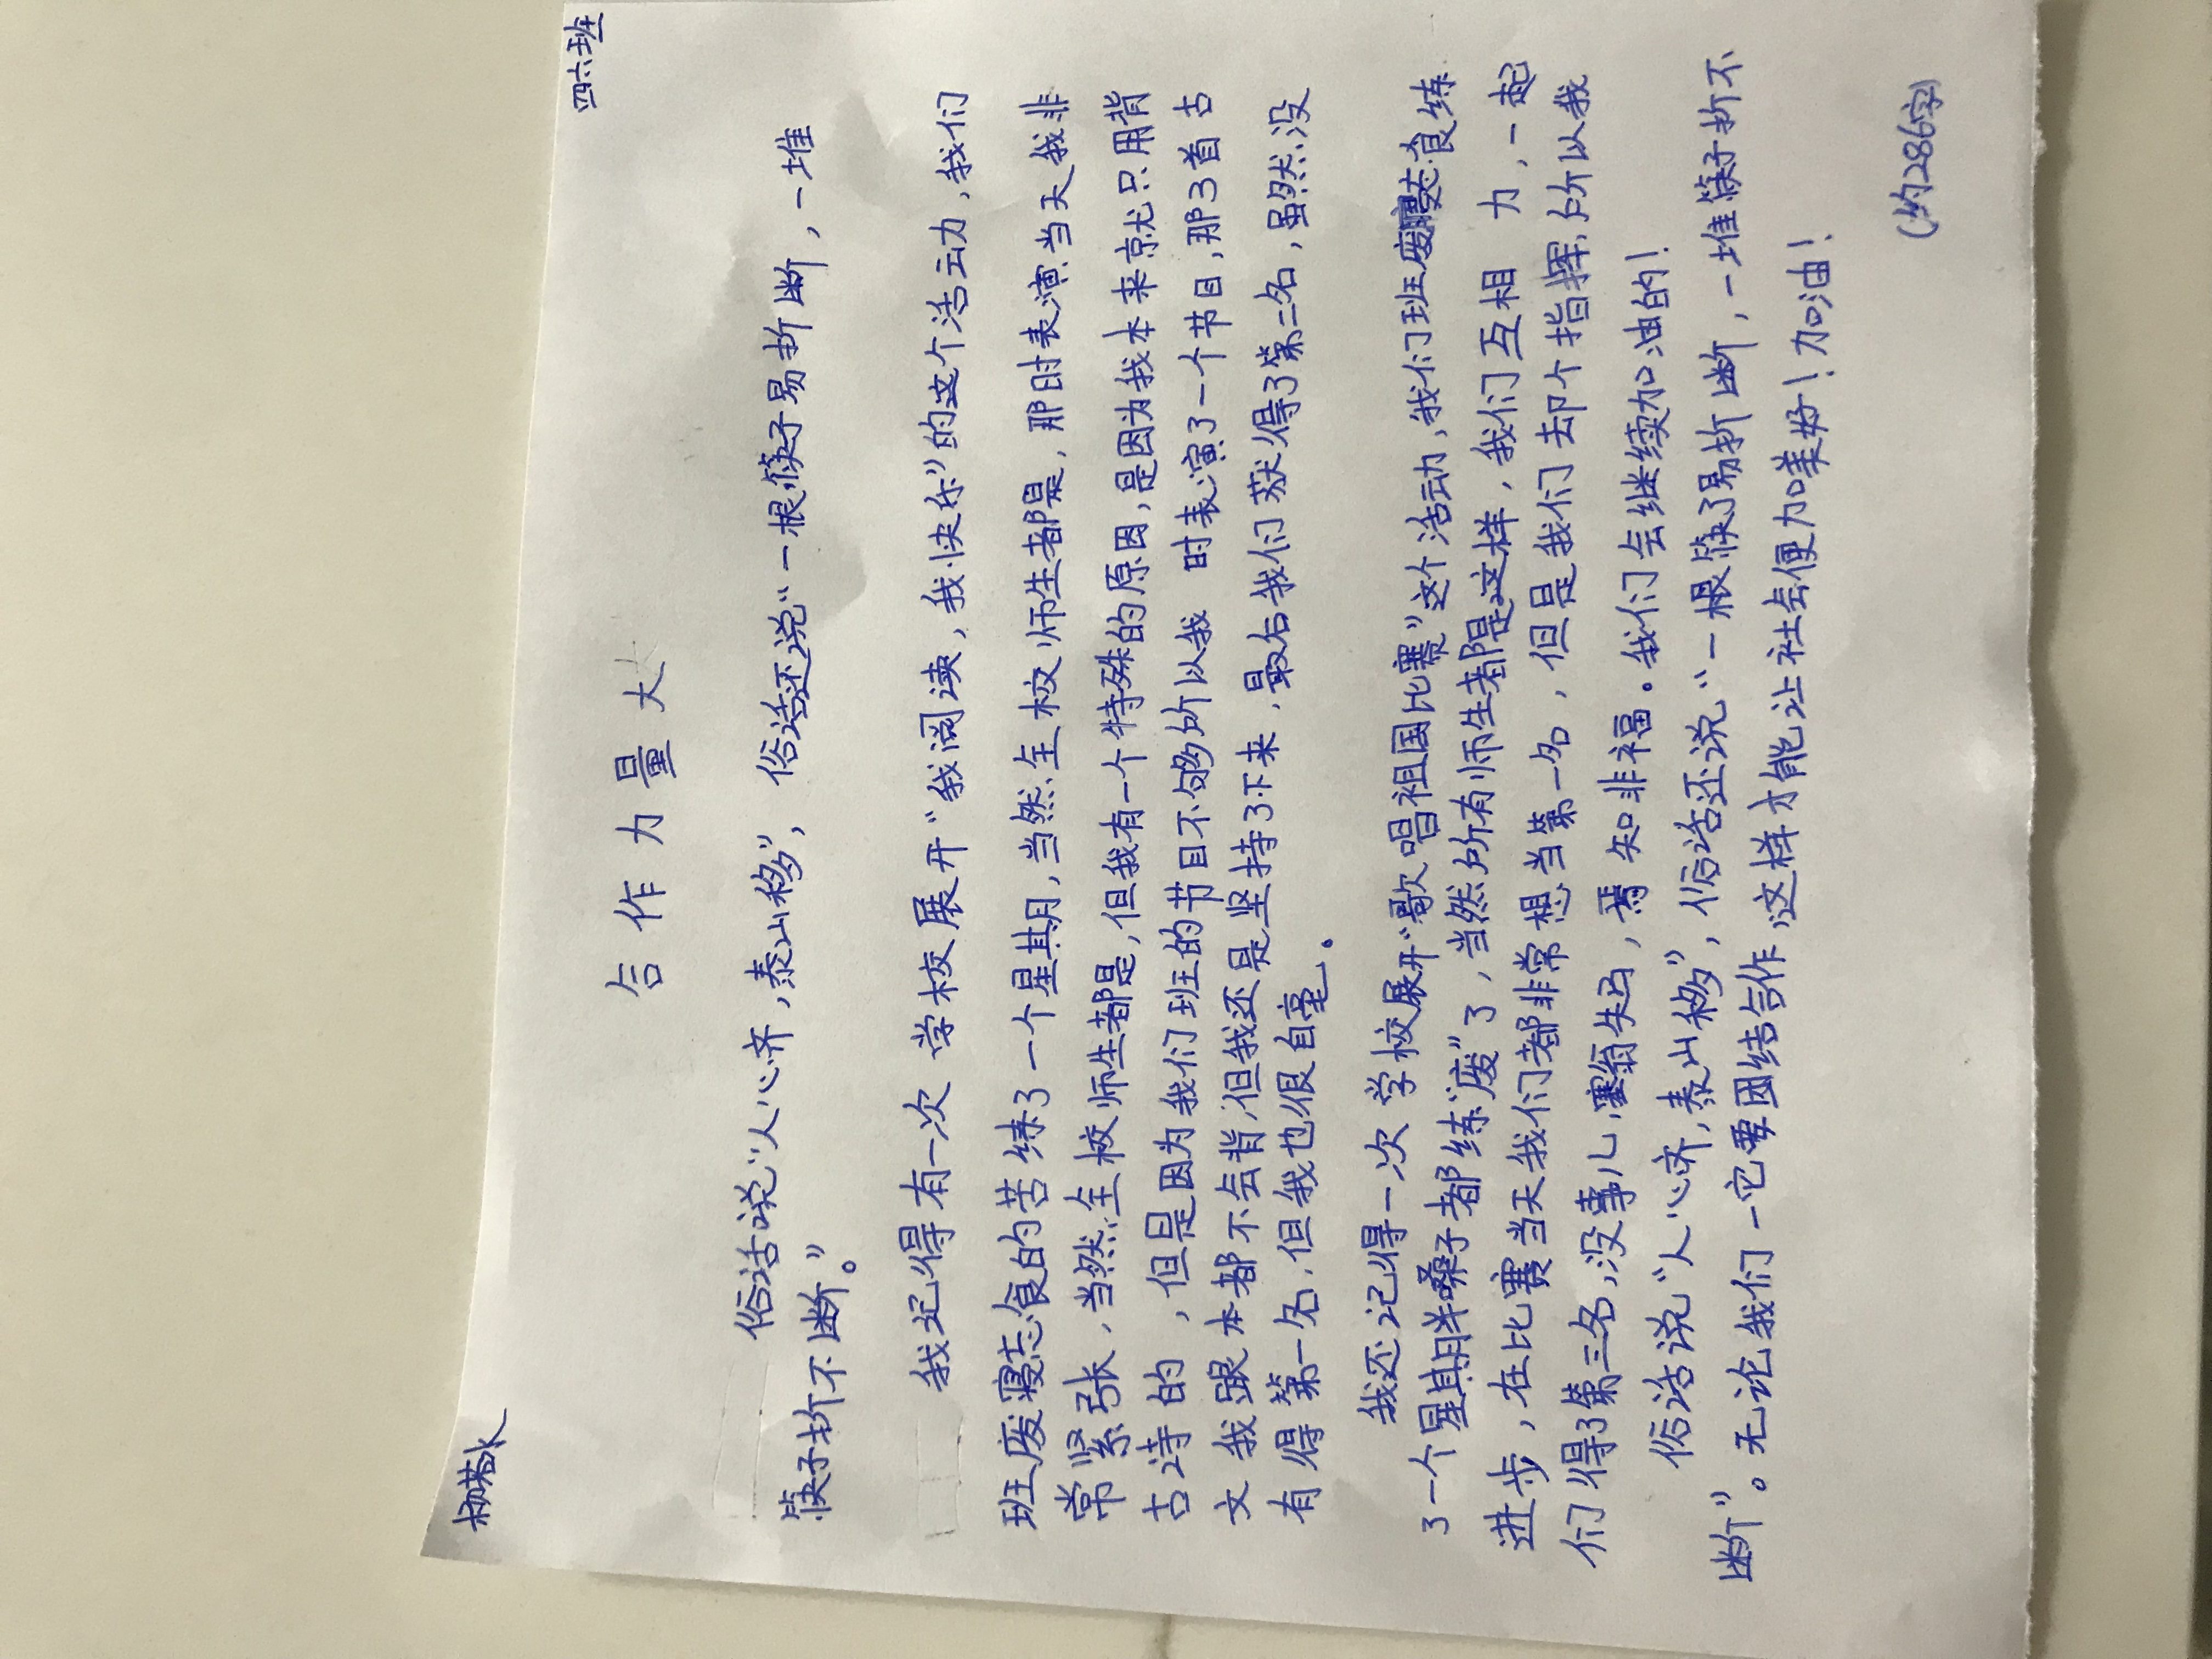 杨若冰
四六班
合作力量大
俗话说“人心齐，泰山移”，俗话还说“一根筷子易折断，一堆
筷子折不断。”
我记得有一次 学校展开“我阅读，我快乐”的这个活动，我们
班废寝忘食的苦练了一个星期，当然全校师生都是，那时表演当天我非
常紧张，当然全校师生都是，但我有一个特殊的原因，是因为我本来就只用背
古诗的，但是因为我们班的节目不够所以我 时表演了一个节目，那3首古
文我跟本都不会背，但我还是坚持了下来，最后我们获得了第二名，虽然没
有得第一名，但我也很自毫。
我还记得一次 学校展开“歌唱祖国比赛”这个活动，我们班废寝忘食练
了一个星期半嗓子都练“废”了，当然所有师生都是这样，我们互相 力，一起
进步，在比赛当天我们都非常想当第一名，但是我们去却个指挥，所以我
们得了第三名，没事儿，塞翁失马，焉知非福。我们会继续加油的！
俗话说“人心济，泰山移”，俗话还说“一根筷子易折断，一堆筷子折不
断”。无论我们一它要团结合作，这样才能让社会便加美好！加油！
（约286字）